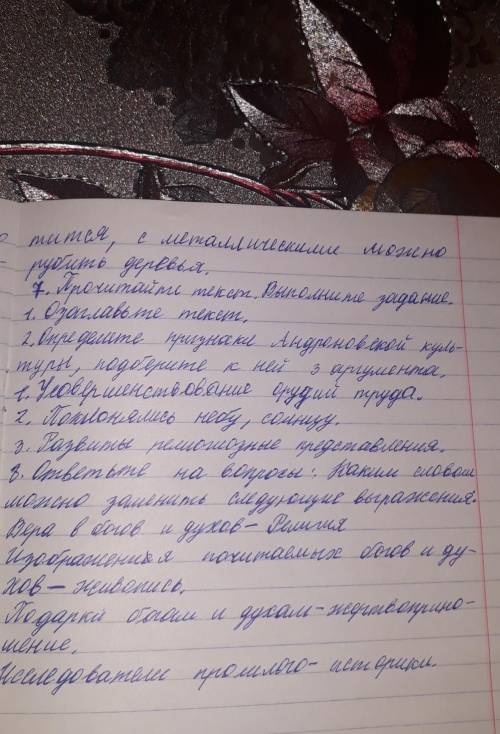 тится, с металлическими можно
рубить деревья.
7. Прочитайте текст. Выполните задание.
1. Озаглавьте текст.
2. Определите признаки Андроновской куль-
туры, подоберите к ней 3 аргумента.
1. Усовершенствование орудий труда.
2. Поклонялись небу, солнцу.
3. Развиты религиозные представления.
3. Ответьте на вопросы: Каким словом
можно заменить следующие выражения.
Вера в богов и духов - Религия
Изображения почитаемых богов и ду-
хов - живопись.
Подарки богам и духам - жертвоприно-
шение.
Исследователи прошлого - историки.